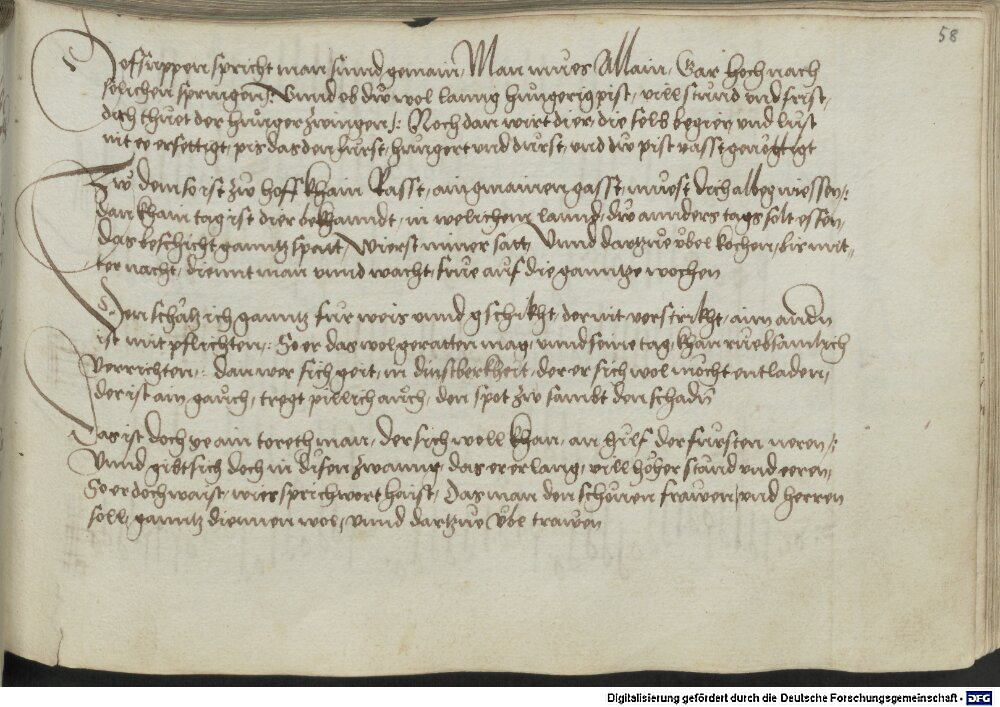 58
Hofsuppen spricht man sünnd gemain, Man mues Allain, Gar hoch nach
sölichen springen /: Vnnd ob dw wol lanng hungerig pist, vill stund vnd frist,
dich thuet der hunger zwingen /: Noch dan wirt dier, die selb begier vnd lust
nit ee ersettigt, pis das den fürst, hungert vnd dürst, vnd dw pist vasst
Zw dem so ist zw hoff khain Rasst, ain gmainen gasst, muest dich albeg wissen /:
dan khain tag ist dier bekhanndt, in welichem lannd, dw annders tags solt essen,
das beschicht ganntz spatt, wierst nimer satt, Vnnd dartzue übel kochen, bis mit-
ter nacht, diennt man vnnd wacht, frue auf die ganntze wochen
Den schätz ich ganntz für weis vnnd gschikht, der nit verstrikht, aim andern
ist mit pflichten /: So er das wol geratten mag, vnnd seine tag, khan ruebsamlich
Verrichten /: dan wer sich geit, in dinstberkheit, der er sich wol möcht entladen,
der ist ain gauch, tregt pillich auch, den spot zw sambt den schadn
Das ist doch ye ain toreth man, der sich woll khan, an hülf der fürsten neren /:
Vnnd gibt sich doch in disen zwanng, das er erlang, vill höher stand vnd eeren,
So er doch waist, wies sprichwort haist, Das man den schönen frawen vnd herren
soll, ganntz diennen wol, vnnd dartzue übl trawen
Digitalisierung gefördert durch die Deutsche Forschungsgemeinschaft - DFG